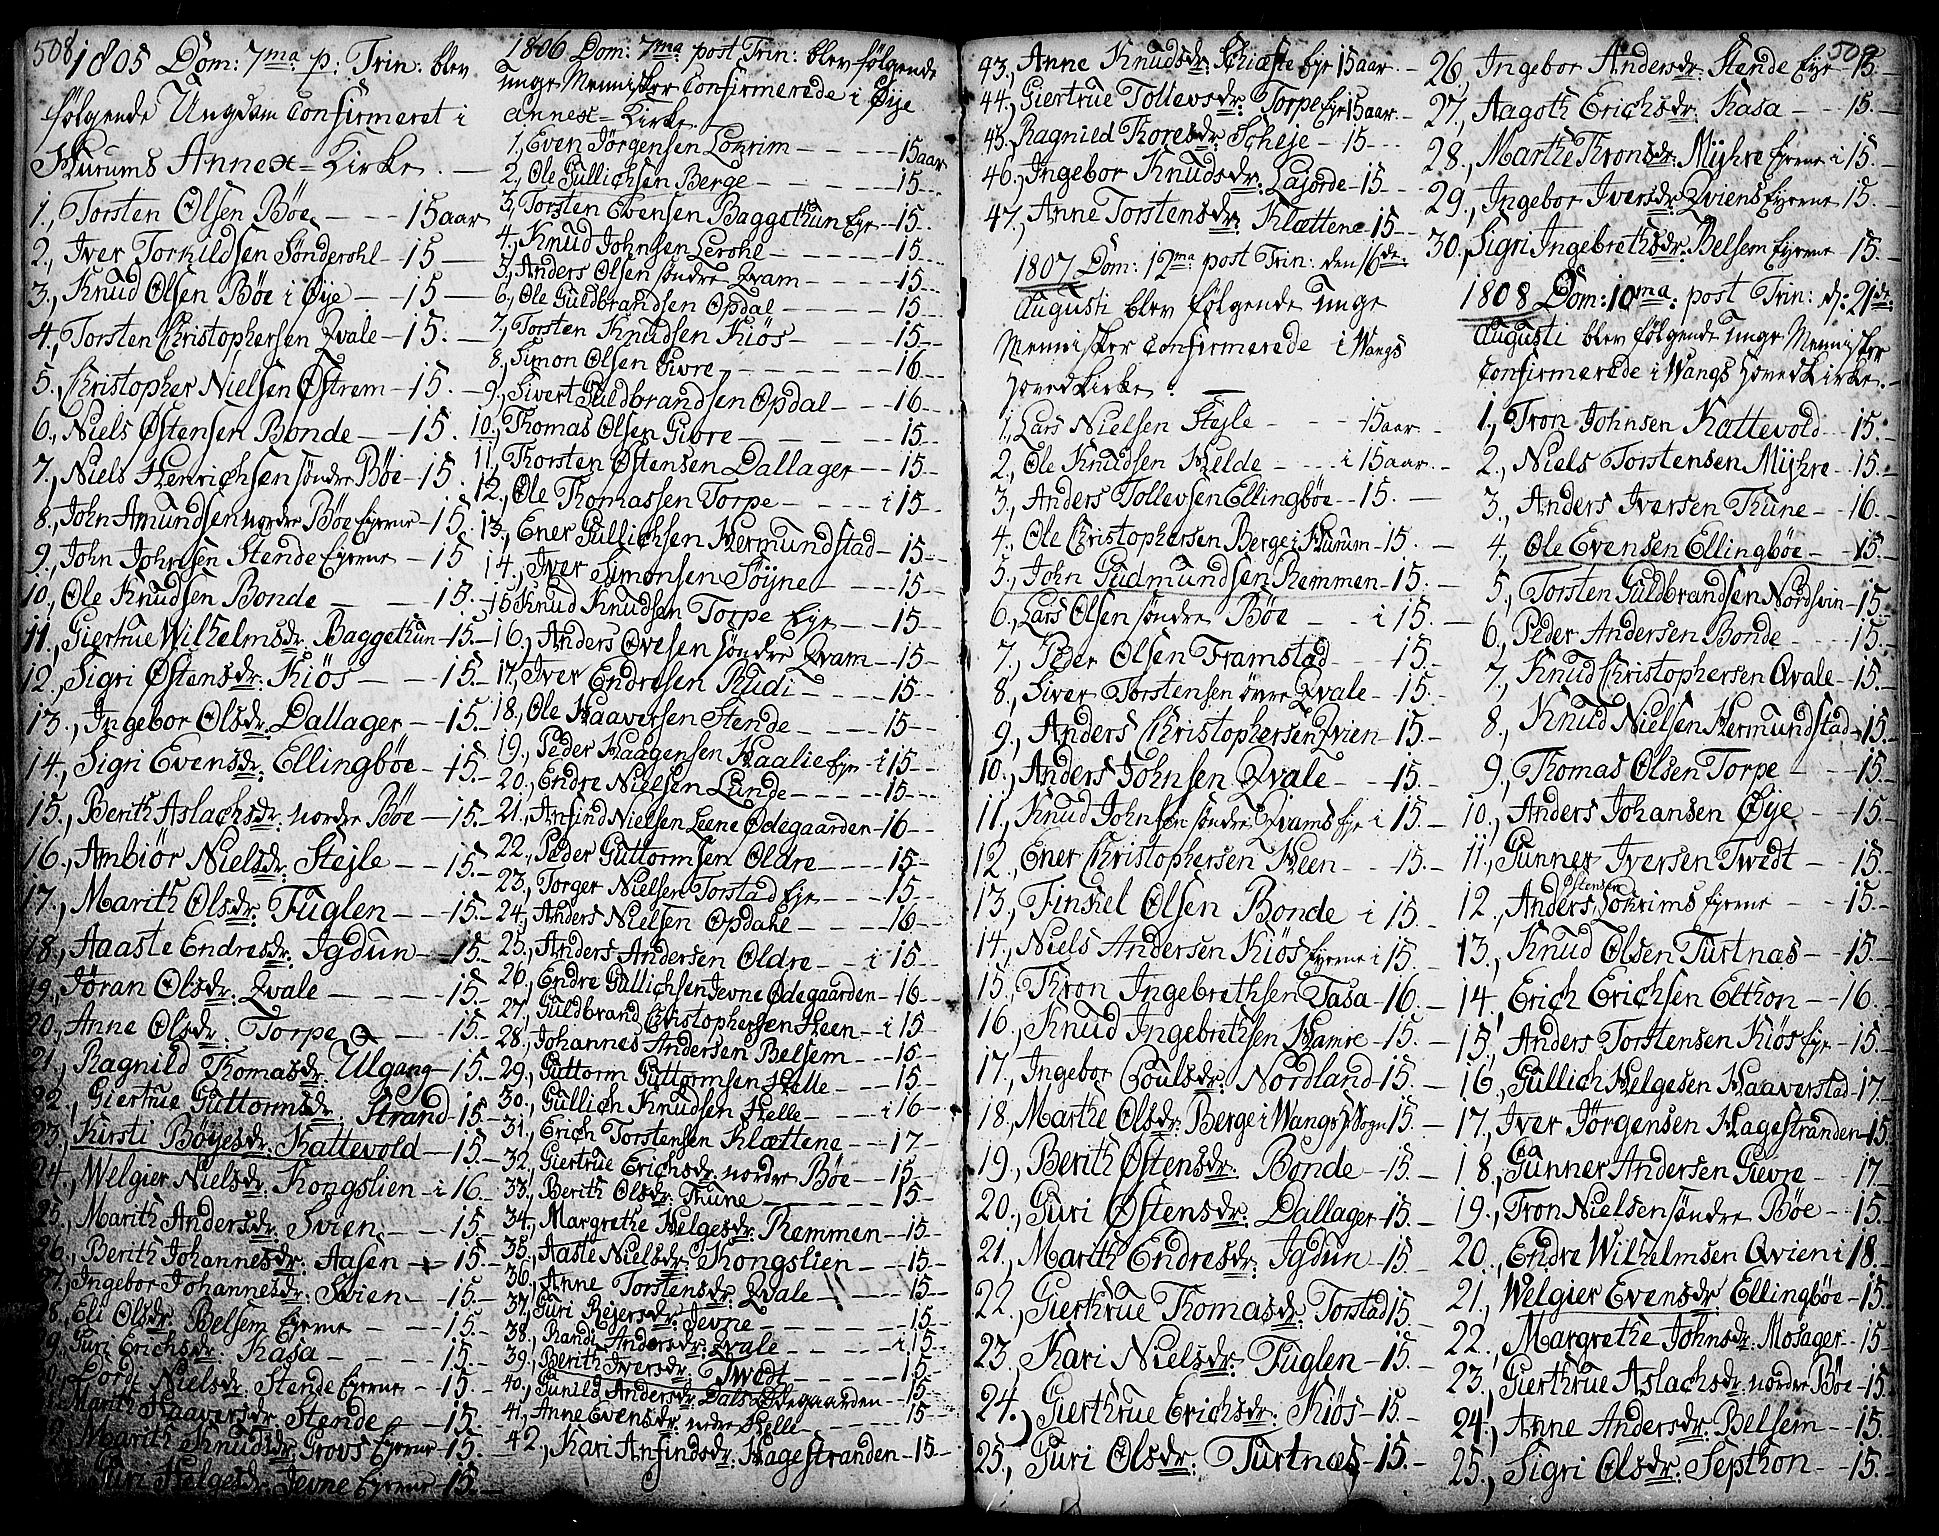 508
1805 Dom: 7ma p: Trin: blev
følgende Ungdom Confirmeret i
Hurums Annex-Kirke.
1, Torsten Olsen Bøe - - - 15 aar
2., Iver Torkildsen Sønderohl - 15
3., Knud Olsen Bøe i Øye - - 15
4., Torsten Christophersen Qvale - 15.
5. Christopher Nielsen Østrem - 15.
6., Niels Østensen Bonde - - 15.
7., Niels Henrichsen søndre Bøe - 15.
8., John Amundsen nordre Bøe Eyerne - 15.
9., John Johnsen Stende Eyerne - 15
10., Ole Knudsen Bonde - - 15.
11., Giertrue Wilhelmsdr. Baggethun - 15.
12., Sigri Østensdr: Kiøs - - 15.
13., Ingebor Olsdr: Dallager - 15.
14., Sigri Evensdr: Ellingbøe - 15.
15., Berith Aslachsdr: nordre Bøe - 15.
16., Ambiør Nielsdr: Stejle - - 15.
17., Marith Olsdr: Fuglen - - 15.
18., Aaste Endresdr: Igdun - 15.
19., Jøran Olsdr: Qvale - - - 15.
20., Anne Olsdr: Torpe - - 15.
21., Ragnild Thomasdr: Ulgang - 15.
22., Giertrue Guttormsdr: Strand - 15.
23., Kirsti Bøyesdr: Kattevold - 15.
24., Welgier Nielsdr: Kongslien - i 16.
25., Marith Andersdr: Svien - - 15.
26., Berith Johannesdr: Aasen - 15.
27., Ingebor Johannesdr: Svien - 15.
8., Eli Olsdr: Belsem Eyerne - - 15.
9., Guri Erichsdr: Kasa - - 15.
Lorde Nielsdr: Stende Eyerne - 15.
Marith Haaversdr: Stende - - 15.
Marith Knudsdr: Grovs Eyerne - 15.
Guri Helgesdr: Jevne Eyerne - 15.
1806 Dom: 7ma post Trin: blev følgende
unge Mennisker Confirmerede i Øye
Annex-Kirke.
1, Even Jørgensen Lokrim - - - 15 aar
2., Ole Gullichsen Berge - - - 15
3., Torsten Evensen Baggethun Eye - 15.
4., Knud Johnsen Lerohl - - - 15
5., Anders Olsen søndre Qvam - - 15
6., Ole Guldbrandsen Opdal - - 15
7., Torsten Knudsen Kiøs - - - 15
8., Simon Olsen Givre - - - 16
9., Sivert Guldbrandsen Opdal - - 16
10., Thomas Olsen Givre - - - 15
11, Thorsten Østensen Dallager - - 15
12., Ole Thomassen Torpe - - - i 15
13., Ener Gullichsen Hermundstad - 15
14., Iver Simonsen Søyne - - 15
15 Knud Knudsen Torpe Eye - - 15
16., Anders Ovesen søndre Qvam - 15
17., Iver Endresen Rudi - - - 15
18., Ole Haaversen Stende - - - 15
19., Peder Haagensen Haalie Eye - i 15
20., Endre Nielsen Lunde - - - 15
21., Anfind Nielsen Leene Ødegaarden - 16
22., Peder Guttormsen Oldre - - 15
23., Torger Nielsen Torstad Eye - - 15
24., Anders Nielsen Opdahl - - - 16
25., Anders Andersen Oldre - - i 15
26., Endre Gullichsen Jevne Ødegaarden - 16
27., Guldbrand Christophersen Heen - i 15
28., Johannes Andersen Belsem - - 15
29., Guttorm Guttormsen Helle - - 15
30., Gullich Knudsen Helle - - - i 16
31., Erich Torstensen Klættene - - 17
32., Giertrue Erichsdr: nordre Bøe - 15
33., Berith Olsdr: Thune - - - 15
34., Margrethe Helgesdr: Remmen - 15
35., Aaste Nielsdr: Kongslien - - 15
36., Anne Torstensdr: Qvale - - 15
37., Guri Rejersdr: Jevne - - - 15
38., Randi Andersdr: Qvale - - - i 15
39., Berith Iversdr: Twedt - - - 15
40., Gunild Andersdr: Dals Ødegaarden - 15
41., Anne Evensdr: nedre Helle - - 15
42., Kari Anfindsdr: Hagestranden - 15
43., Anne Knudsdr: Schiæste Eye 15 aar.
44., Giertrue Tollevsdr: Torpe Eye 15 aar.
45. Ragnild Thoresdr: Scheje - 15
46., Ingebor Knudsdr: Lajorde - 15
47., Anne Torstensdr: Klættene - 15
1807 Dom: 12ma post Trin: den 16de
Augusti blev følgende Unge
Mennisker Confirmerede i Wangs
Hovedkirke.
1., Lars Nielsen Stejle - - - 15 aar
2., Ole Knudsen Helde - - - i 15 aar.
3., Anders Tollevsen Ellingbøe - - 15.
4., Ole Christophersen Berge i Hurum - 15.
5., John Gudmundsen Remmen - 15.
6., Lars Olsen søndre Bøe - - i 15.
7., Peder Olsen Framstad - - 15.
8., Siver Torstensen øvre Qvale - 15.
9., Anders Christophersen Qvien - 15.
10., Anders Johnsen Qvale - - 15.
11., Knud Johnsen søndre Qvams Eye i 15.
12., Ener Christophersen Heen - - 15.
13., Finkel Olsen Bonde i 15.
14., Niels Andersen Kiøs Eyerne i 15.
15., Thron Ingebrethsen Tasa - 16.
16., Knud Ingebrethsen Hamre - 15.
17., Ingebor Poulsdr: Nordland 15.
18., Marthe Olsdr: Berge i Wangs Sogn 15.
19., Berith Østensdr: Bonde - 15.
20., Guri Østensdr: Dallager - 15.
21., Marith Endresdr: Igdun - 15.
22., Gierthrue Thomasdr: Torstad 15.
23., Kari Nielsdr: Fuglen - 15.
24., Gierthrue Erichsdr: Kiøs - 15.
25., Guri Olsdr: Turtnæs - 15.
509
26., Ingebor Andersdr: Stende Eye - 15
27., Aagoth Erichsdr: Kasa - - - 15.
28., Marthe Thronsdr: Myhre Eyerne i 15.
29., Ingebor Iversdr: Qviens Eyerne - 15.
30., Sigri Ingebrethsdr: Belsem Eyerne - 15.
1808 Dom: 10ma: post Trin: d: 21de
Augusti blev følgende unge Mennisker
Confirmerede i Wangs Hovedkirke.
1., Tron Johnsen Kattevold - - 15.
2., Niels Torstensen Myhre - 15.
3., Anders Iversen Thune - - 16.
4., Ole Evensen Ellingbøe - - 15.
5., Torsten Guldbrandsen Nordsvin - 15.
6., Peder Andersen Bonde - - - 15.
7., Knud Christophersen Qvale - 15.
8., Knud Nielsen Hermundstad - 15.
9., Thomas Olsen Torpe - - - 15.
10., Anders Johansen Øye - - 15.
11., Gunner Iversen Twedt - - 15.
12., Anders Østensen Lokrims Eyerne - - 15.
13., Knud Olsen Turtnæs - - 15.
14., Erich Erichsen Elthon - - 16.
15., Anders Torstensen Kiøs Eye - 15.
16., Gullich Helgesen Haaverstad - 17.
17., Iver Jørgensen Hagestranden - 15
18., Gunner Andersen Gievre - 17.
19., Tron Nielsen søndre Bøe - 15.
20., Endre Wilhelmsen Qvien i 18.
21., Welgier Evensdr Ellingbøe - 15.
22., Margrethe Johnsdr: Mosager - 15
23., Gierthrue Aslachsdr: nordre Bøe - 15
24., Anne Andersdr: Belsem - 15.
25., Sigri Olsdr: Septhon - - 15.